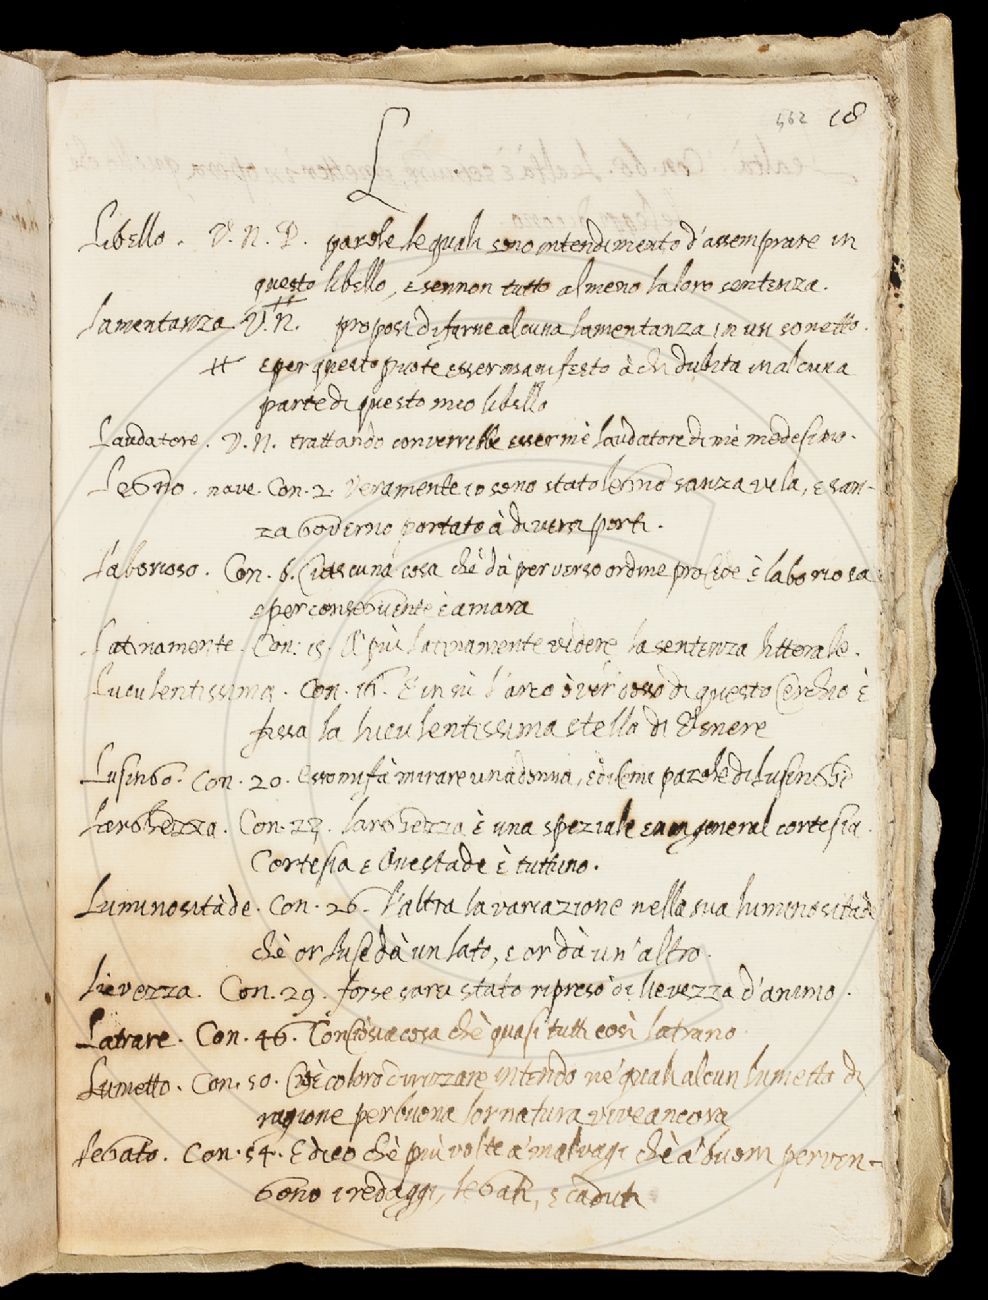 562 18
L
Libello. V. N. D. parole le quali sono intendimento d'assemprare in
questo libello, e sennon tutto almeno la loro sentenza.
Lamentanza V. N. proposi di farne alcuna lamentanza in un sonetto.
# e per questo puote esser manifesto à chi dubita in alcuna
parte di questo mio libello
Laudatore. V. N. trattando converrebbe esser mè laudatore di mè medesimo.
Legno. nave. Con. 2. Veramente io sono stato legno sanza vela, e san-
za governo portato à diversi porti.
Laborioso. Con. 6. Ciascuna cosa chè dà perverso ordine procede è laboriosa
e per conseguente è amara
Latinamente. Con. 15. E più latinamente vedere la sentenza litterale.
Luculentissima. Con. 16. E in sù l'arco over dosso di questo Cerchio è
fissa la luculentissima stella di Venere
Lusingo. Con. 20. Esso mi fà mirare una donna, e dicemi parole di lusinghe
Larghezza. Con. 28. larghezza è una speziale e non general cortesia.
Cortesia e Onestade è tuttuno.
Luminositàde. Con. 26. l'altra la variazione nella sua luminositàde
chè or luce dà un lato, e or dà un'altro.
Lievezza. Con. 29. forse saria stato ripreso di lievezza d'animo.
Latrare. Con. 46. Conciosiacosa chè quasi tutti così latrano.
Lumetto. Con. 50. Cioè coloro dirizzare intendo ne' quali alcun lumetto di
ragione per buona lor natura vive ancora
Legato. Con. 54. E dico chè più volte a' malvagi chè a' buoni perven-
gono i redaggi, legati, e caduti